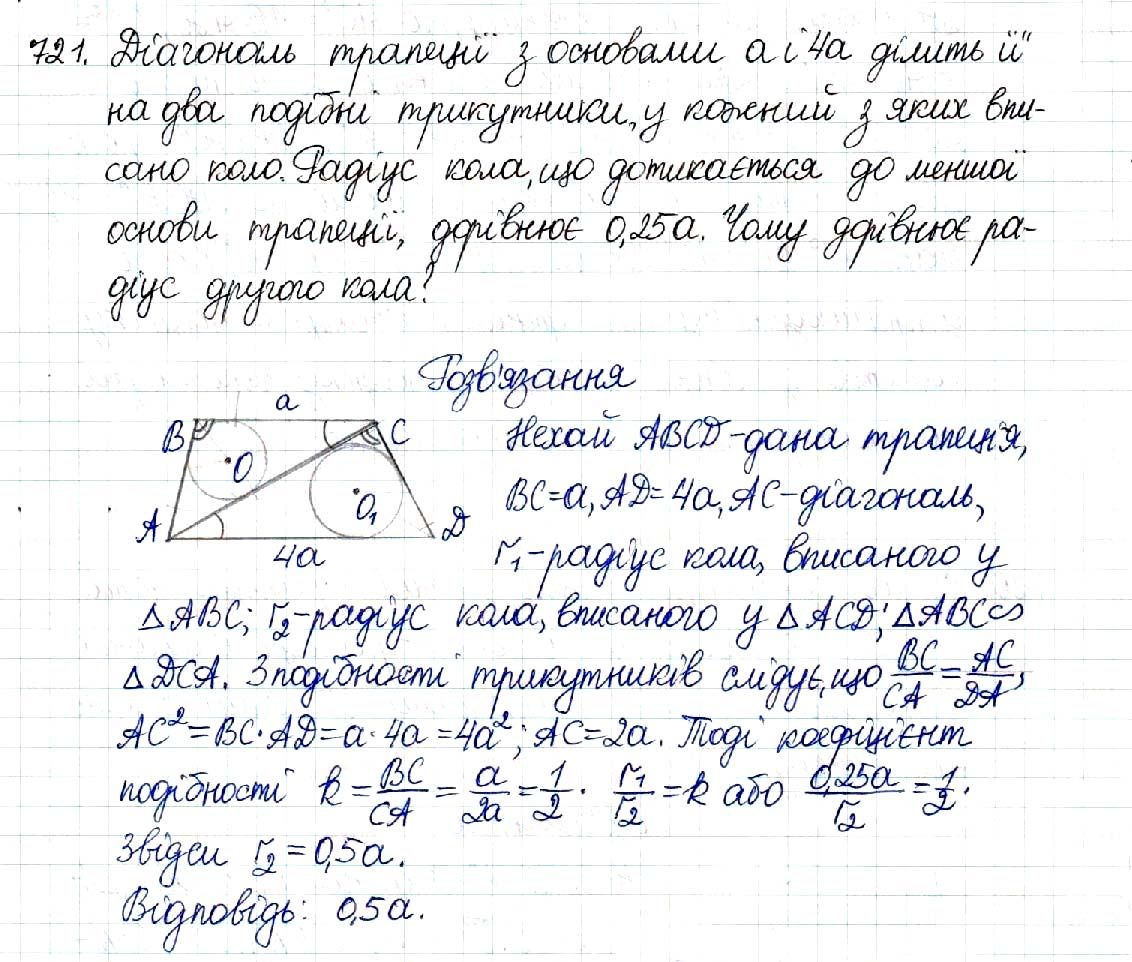 721. Діагональ трапеції з основами a і 4a ділить її
на два подібні трикутники, у кожний з яких впи-
сано коло. Радіус кола, що дотикається до меншої
основи трапеції, дорівнює 0,25a. Чому дорівнює ра-
діус другого кола?
Розв'язання
a
B C
O
O₁
A D
4a
Нехай ABCD - дана трапеція,
BC=a, AD=4a, AC-діагональ,
r₁-радіус кола, вписаного у
△ABC; r₂-радіус кола, вписаного у △ACD; △ABC∽
△DCA. З подібності трикутників слідує, що BC/CA = AC/DA,
AC²=BC·AD=a·4a=4a²; AC=2a. Тоді коефіцієнт
подібності k = BC/CA = a/2a = 1/2. r₁/r₂ = k або 0,25a/r₂ = 1/2.
Звідси r₂ = 0,5a.
Відповідь: 0,5a.